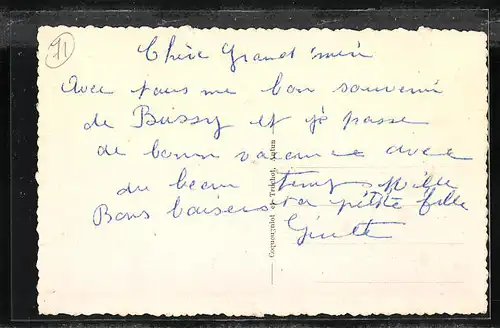 71
Chère Grand'mère
Avec tous me bon souvenir
de Bussy et je passe
de bonn vacance avec
du beau temp
Bons baisers ta pétite fille
Ginette
Coqueugniot et Tréchot, Autun